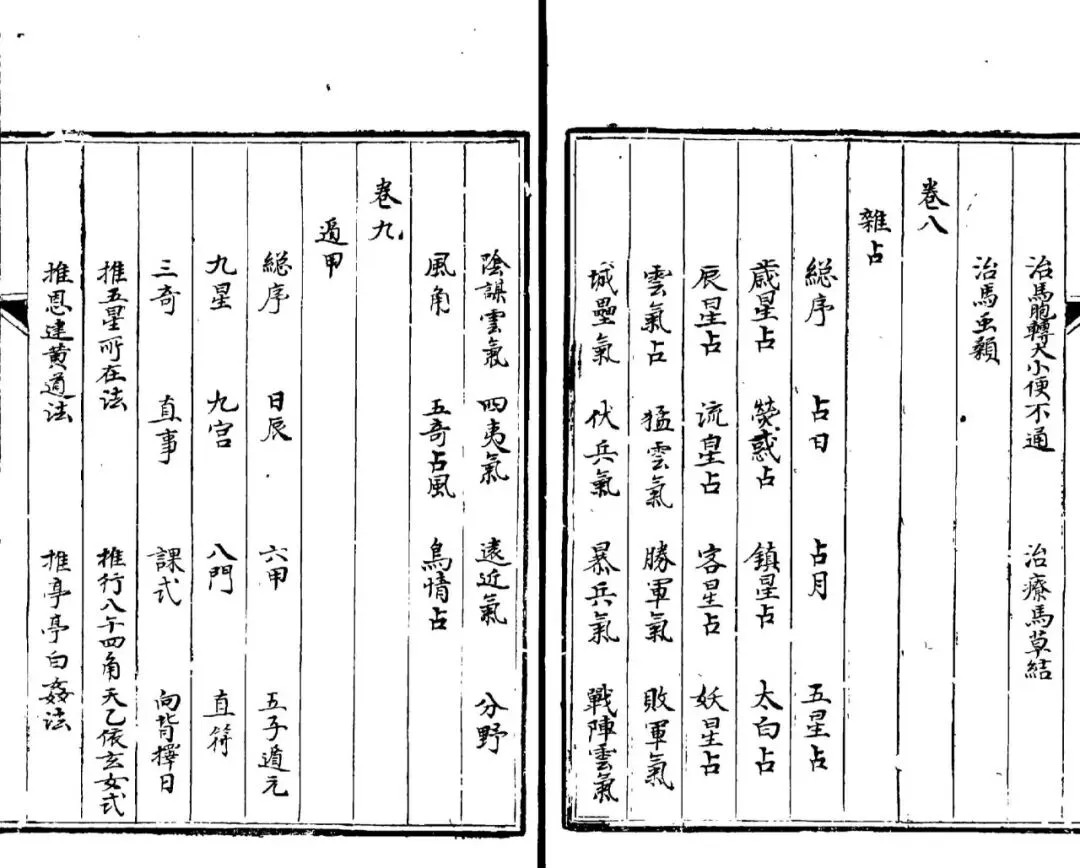 治馬胞轉大小便不通 治療馬草結
治馬虫顙
卷八
雜占
総序 占日 占月 五星占
歲星占 熒惑占 鎮星占 太白占
辰星占 流星占 客星占 妖星占
雲氣占 猛雲氣 勝軍氣 敗軍氣
城壘氣 伏兵氣 暴兵氣 戰陣雲氣
陰謀雲氣 四夷氣 遠近氣 分野
風角 五奇占風 鳥情占
卷九
遁甲
総序 日辰 六甲 五子遁元
九星 九宮 八門 直符
三奇 直事 課式 向背擇日
推五星所在法 推行八午四角天乙依玄女式
推恩建黄道法 推亭亭白姦法